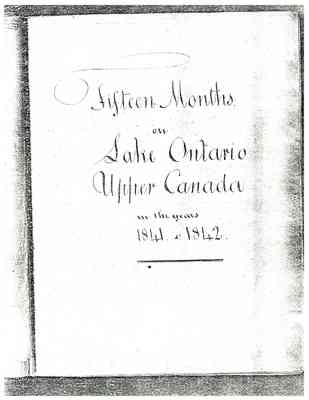 Fifteen Months
on
Lake Ontario
Upper Canada
in the years
1841 & 1842.